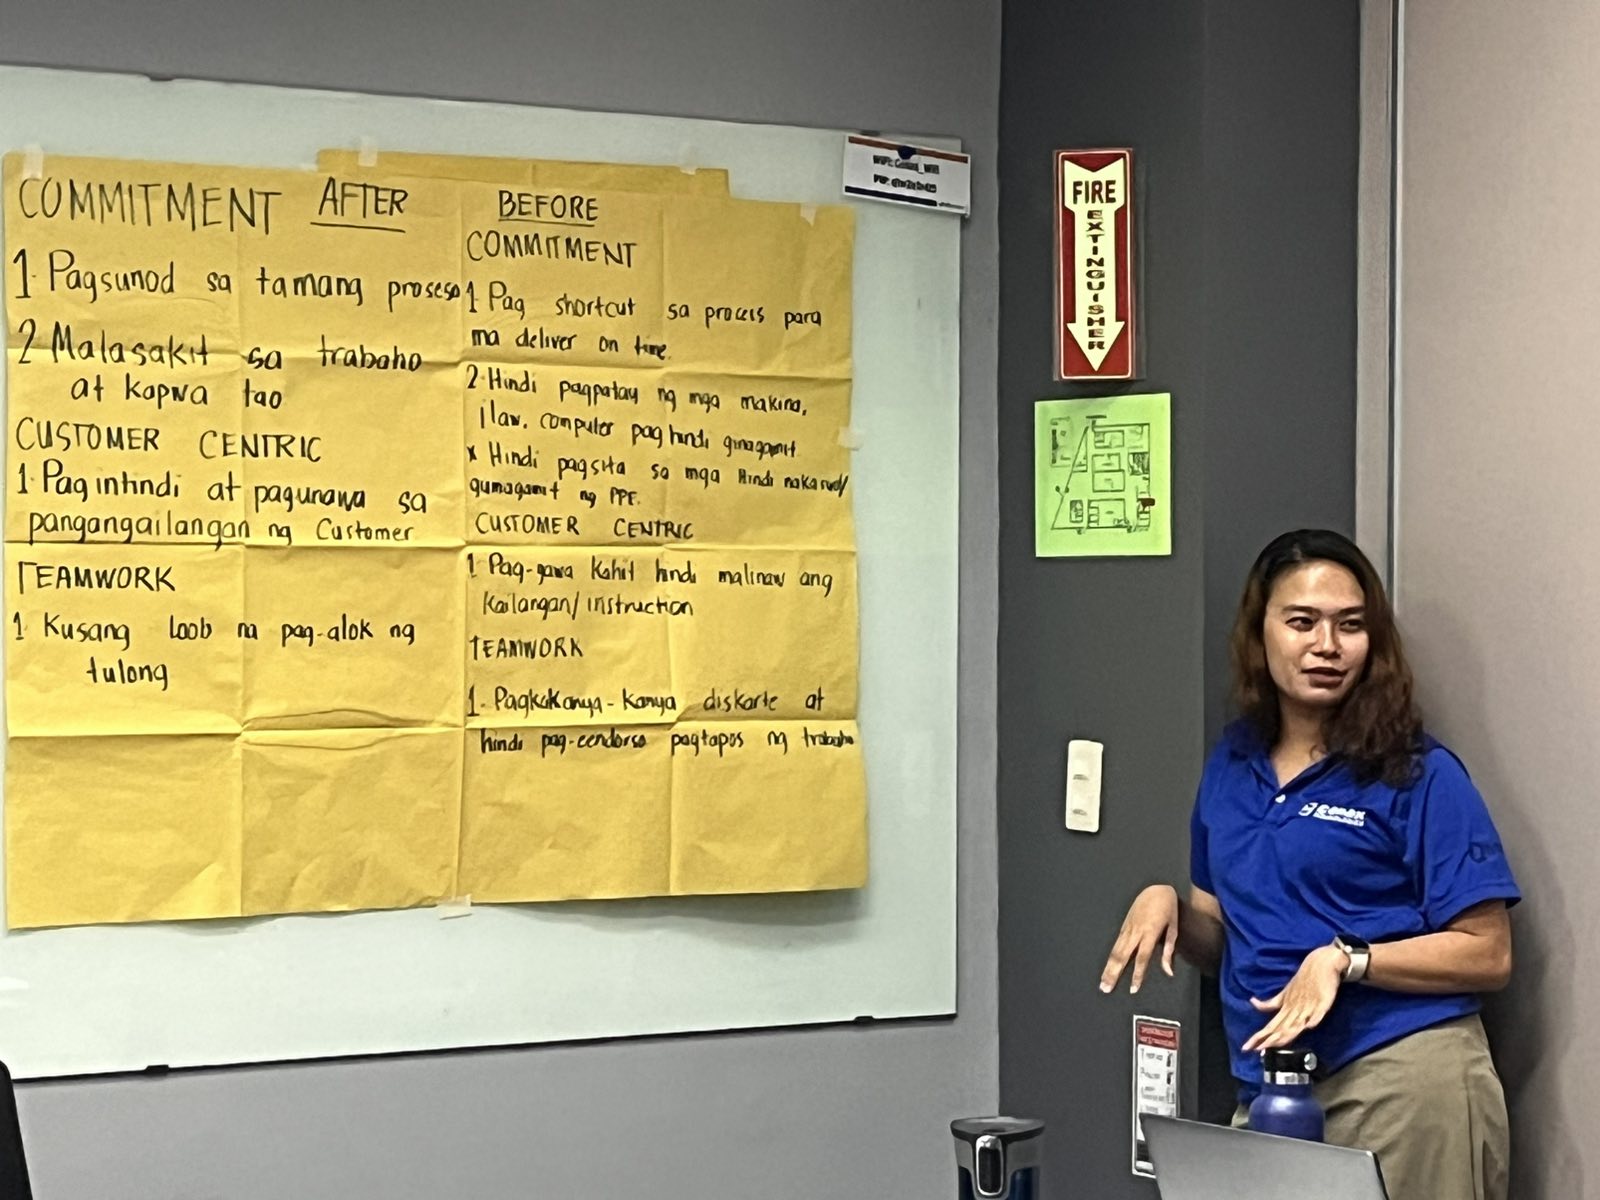 COMMITMENT AFTER
1. Pagsunod sa tamang proseso
2 Malasakit sa trabaho
at kapwa tao
CUSTOMER CENTRIC
1. Pag intindi at pagunawa sa
pangangailangan ng Customer
TEAMWORK
1. Kusang loob na pag-alok ng
tulong
BEFORE
COMMITMENT
1 Pag shortcut sa process para
ma deliver on time.
2. Hindi pagpatay ng mga makina,
ilaw, computer pag hindi ginagamit
x Hindi pagsita sa mga Hindi nakasuot/
gumagamit ng PPE.
CUSTOMER CENTRIC
1 Pag-gawa kahit hindi malinaw ang
kailangan/instruction
TEAMWORK
1. Pagkakanya-kanya diskarte at
hindi pag-eendorso pagtapos ng trabaho
FIRE
EXTINGUISHER